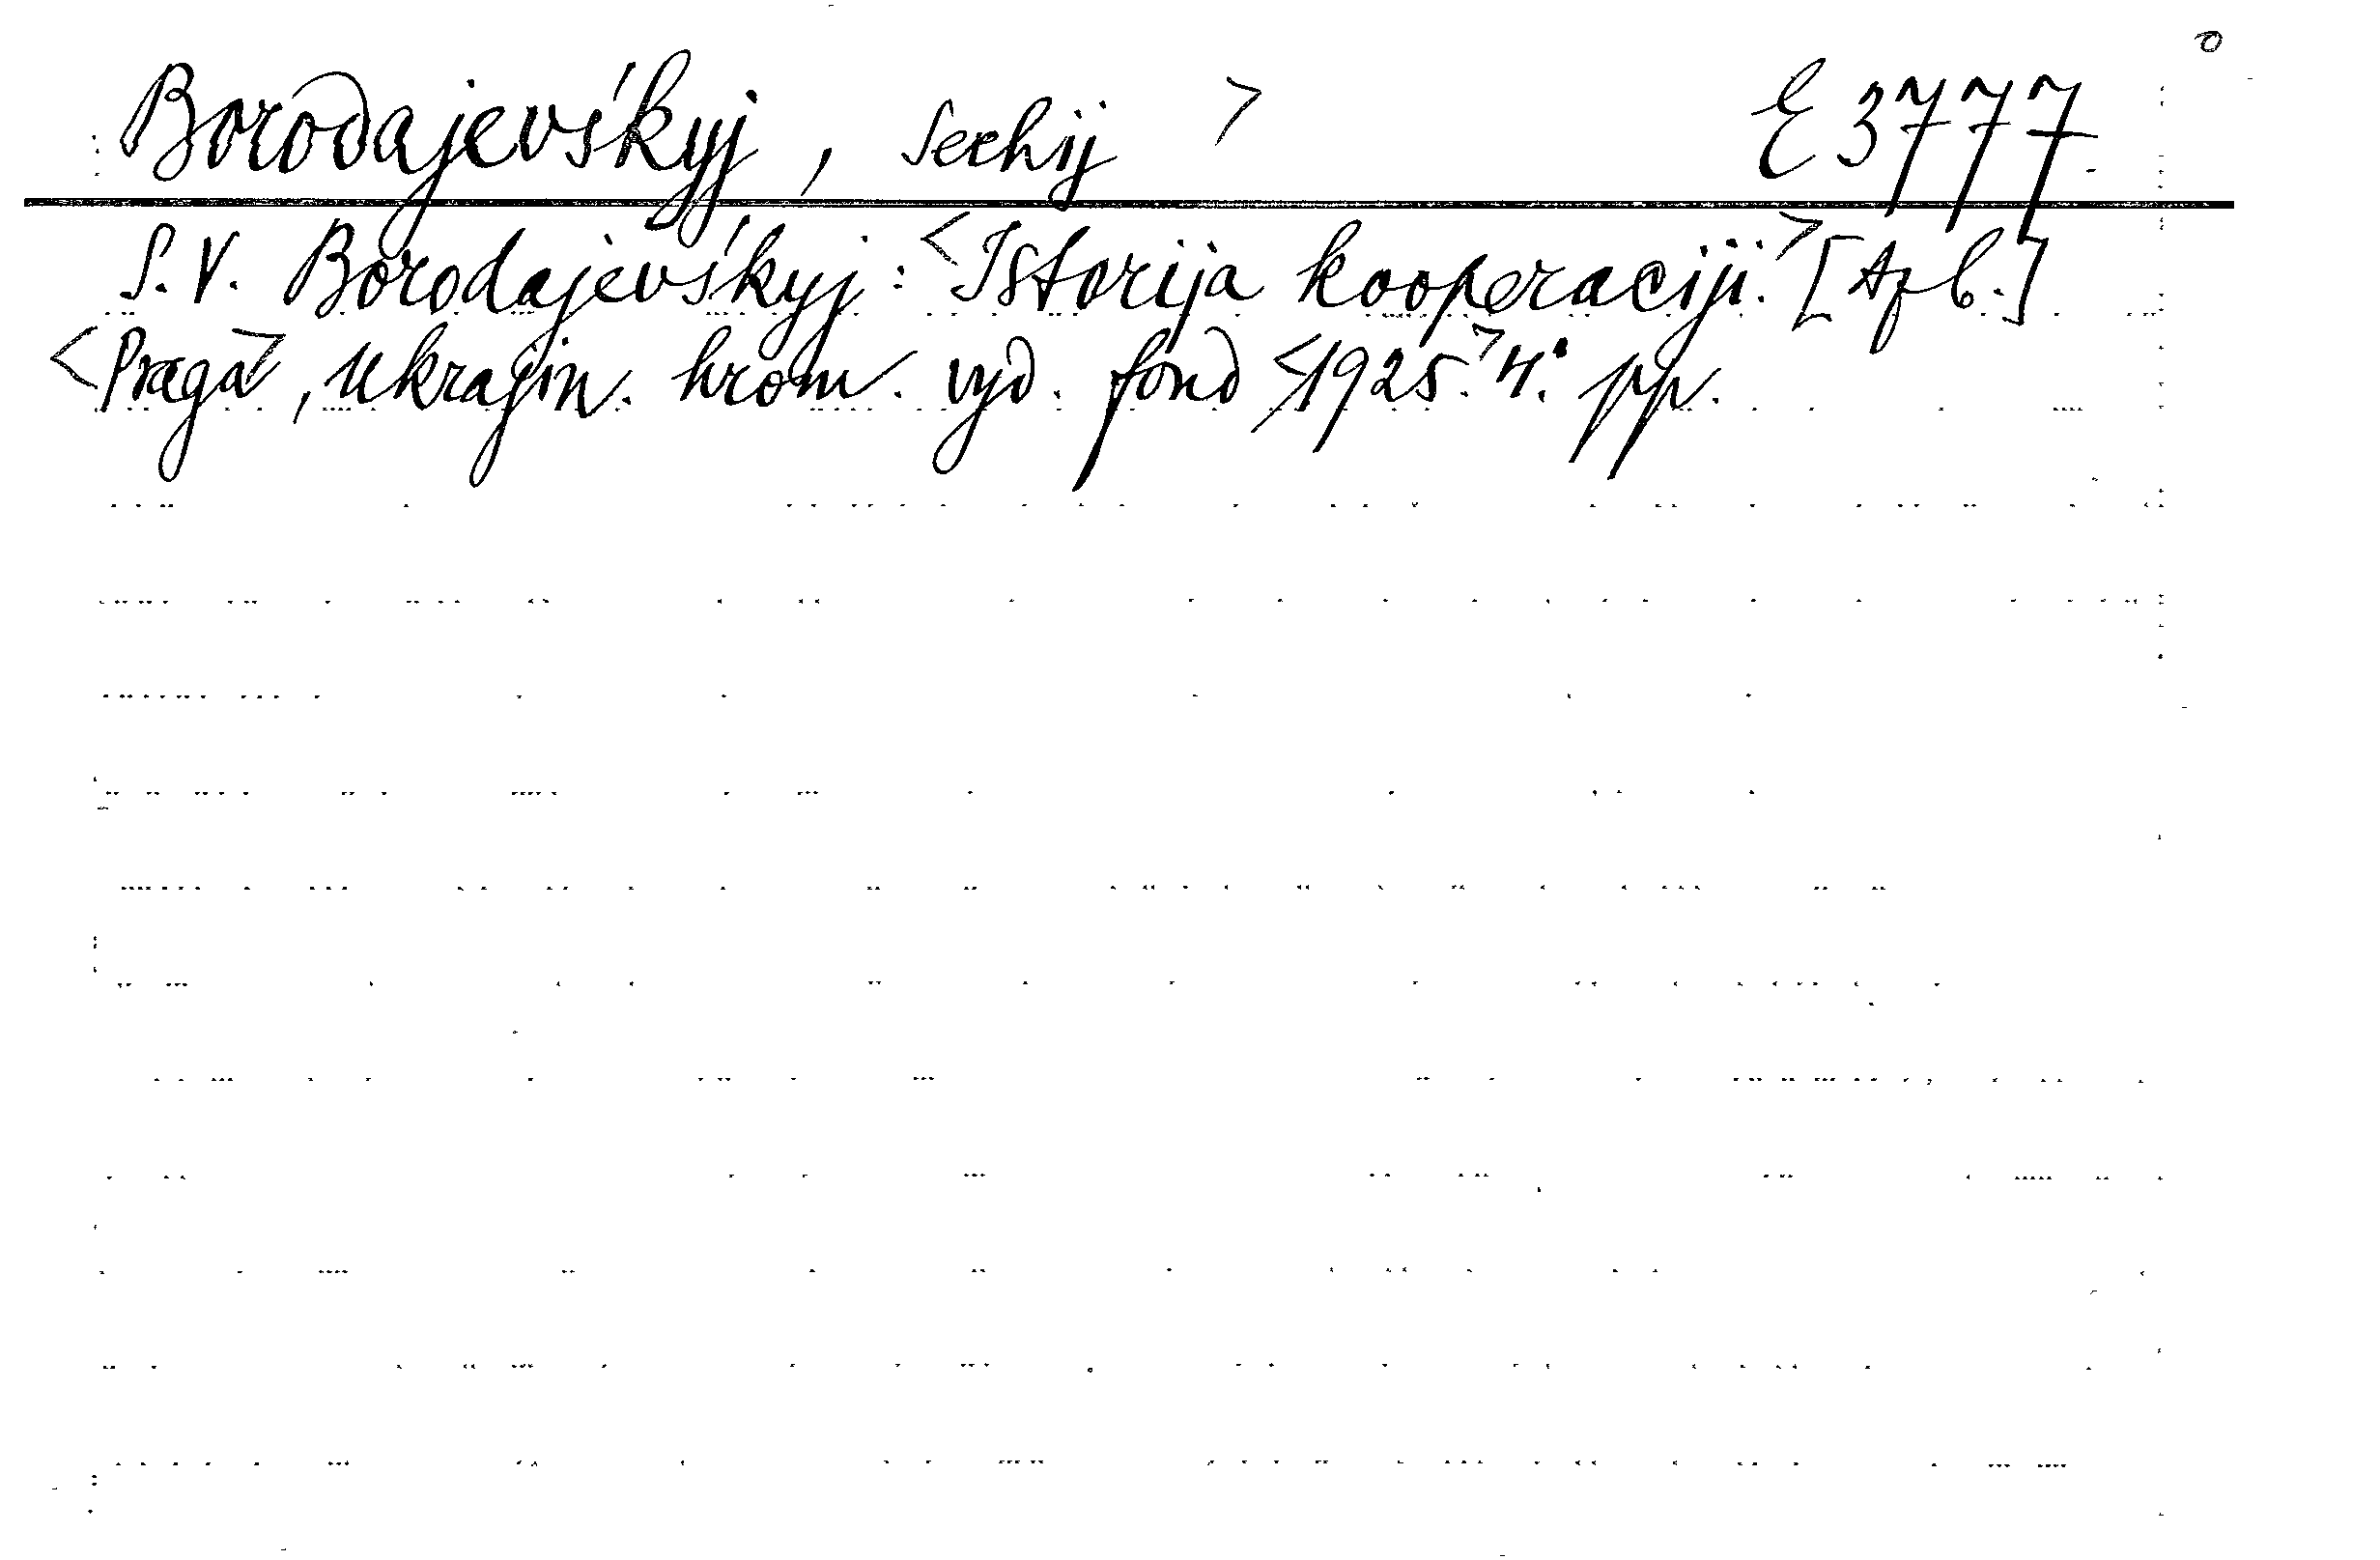 Borodajevśkyj, Serhij > E 3777.
S. V. Borodajevśkyj: <Istorija kooperaciji.> [Afb.]
<Praga>, Ukrajin. hrom. vyd. fond <1925.> 4.° pp.